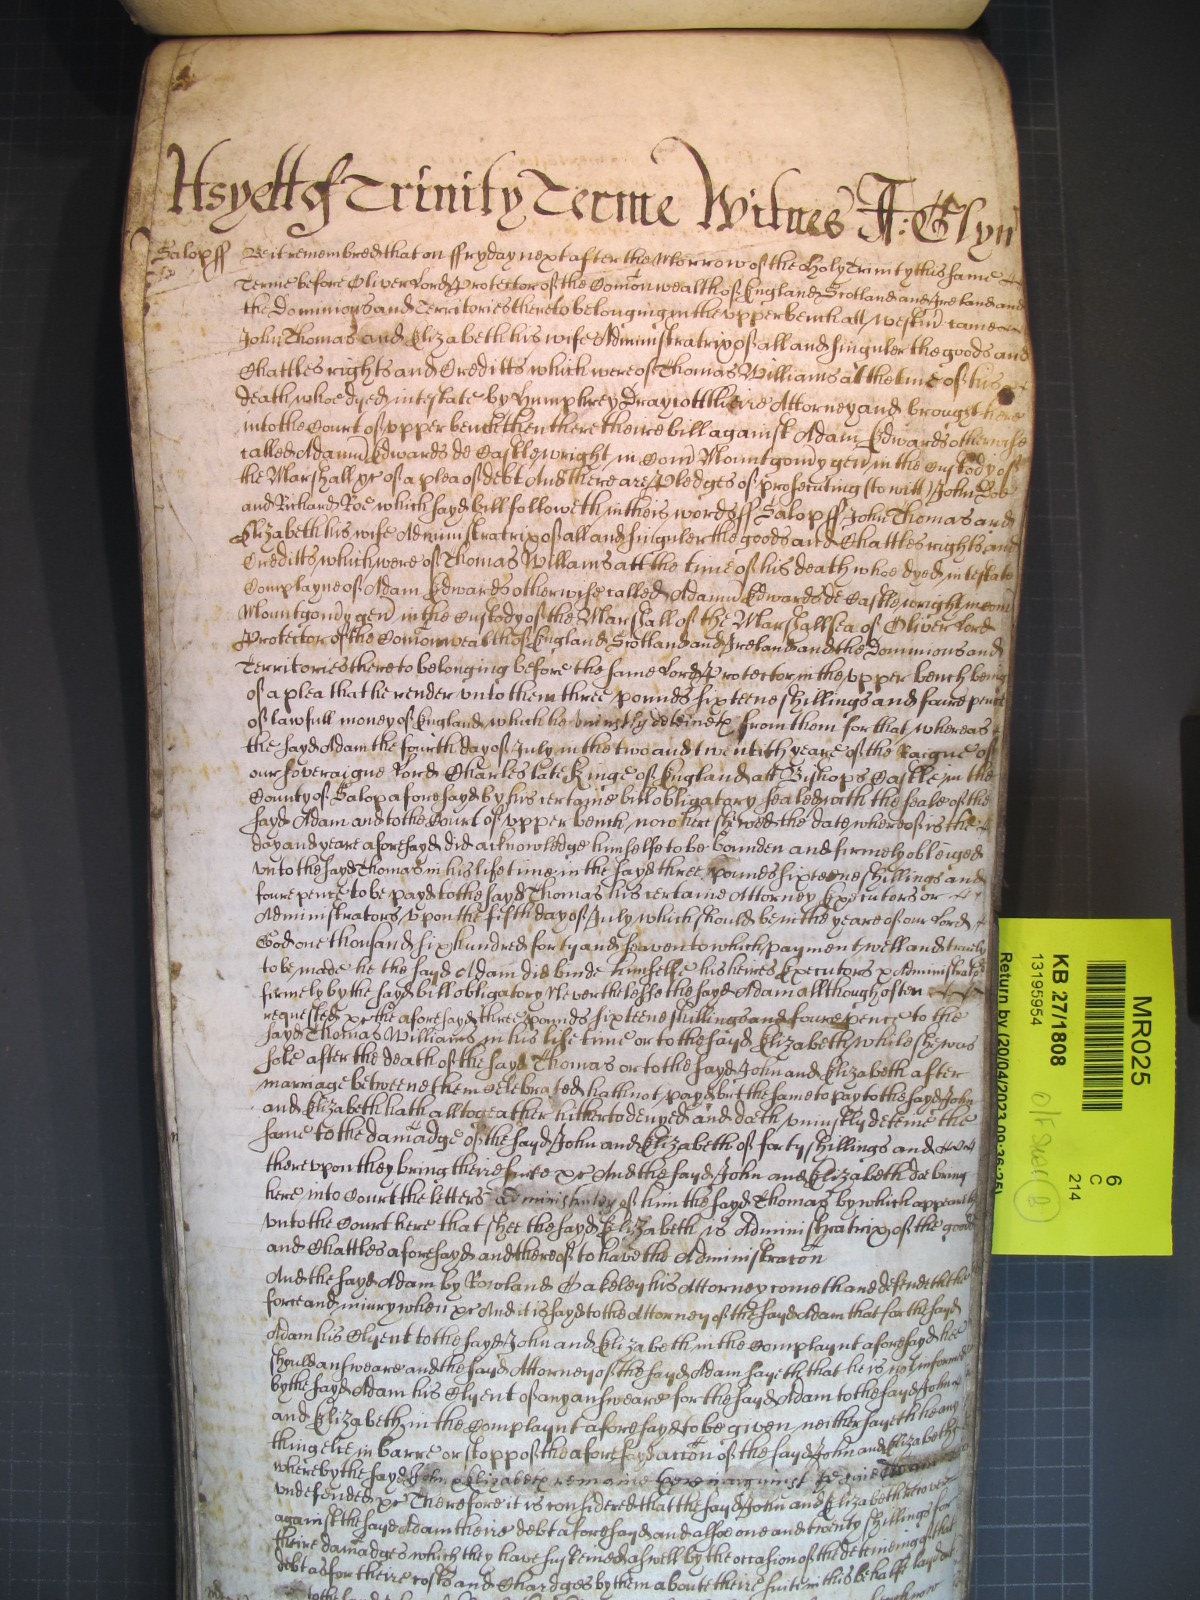 As yett of Trinity Terme Witnes J: Glyn
Salop ss Be it remembred that on ffryday next after the Morrow of the Holy Trinity this same
Terme before Oliver Lord Protector of the Comonwealth of England Scotland and Ireland and
the Dominions and Territories thereto belonging in the upper bench att Westm came
John Thomas and Elizabeth his wife Administratrix of all and singuler the goods and
Chattles rights and Creditts which were of Thomas Williams at the time of his
death whoe dyed intestate by Humphrey Draycott theire Attorney and brought here
into the Court of upper bench then there theire bill against Adam Edwards otherwise
called Adam Edwards de Castlewright in Com Mountgomy gen in the Custody of
the Marshall &c of a plea of debt And there are Pledges of prosecuting (to witt) John Doe
and Richard Roe which sayd bill followeth in theis words ss Salop ss John Thomas and
Elizabeth his wife Administratrix of all and singuler the goods and Chattles rights and
Creditts which were of Thomas Williams att the time of his death whoe dyed intestate
Complayne of Adam Edwards otherwise called Adam Edwards de Castlewright in com
Mountgomy gen in the Custody of the Marshall of the Marshallsea of Oliver Lord
Protector of the Comonwealth of England Scotland and Ireland and the Dominions and
Territories thereto belonging before the same Lord Protector in the upper bench being
of a plea that he render unto them three pounds sixteene shillings and foure pence
of lawfull money of England which he uniustly deteineth from them for that whereas
the sayd Adam the fourth day of July in the two and twentith yeare of the Raigne of
our soveraigne Lord Charles late Kinge of England att Bishops Castle in the
County of Salop aforesayd by his certaine bill obligatory sealed with the seale of the
sayd Adam and to the Court of upper bench now here shewed the date whereof is the
day and yeare aforesayd did acknowledge himselfe to be bounden and firmely obleiged
unto the sayd Thomas in his life time in the sayd three pounds sixteene shillings and
foure pence to be payd to the sayd Thomas his certaine Attorney Executors or
Administrators upon the fifth day of July which should be in the yeare of our Lord
God one thousand six hundred forty and seaven to which payment well and truely
to be made he the sayd Adam did binde himselfe his heires Executors & Administrators
firmely by the sayd bill obligatory Neverthelesse the sayd Adam allthough often
requested &c the aforesayd three pounds sixteene shillings and foure pence to the
sayd Thomas Williams in his life time or to the sayd Elizabeth while shee was
sole after the death of the sayd Thomas or to the sayd John and Elizabeth after
marriage betweene them Celebrated hath not payd but the same to pay to the sayd John
and Elizabeth hath alltogeather hitherto denyed and doth uniustly deteine the
same to the damadge of the sayd John and Elizabeth of forty shillings and
thereupon they bring theire suite &c And the sayd John and Elizabeth doe bring
here into Court the letters Administratory of him the sayd Thomas by which appeareth
unto the Court here that shee the sayd Elizabeth is Administratrix of the goods
and Chattles aforesayd and thereof to have the Administracon
And the sayd Adam by Rowland Oakeley his Attorney cometh and defendeth the
force and iniury when &c And it is sayd to the Attorney of the sayd Adam that for the sayd
Adam his Clyent to the sayd John and Elizabeth in the Complaynt aforesayd hee
should answeare and the sayd Attorney of the sayd Adam sayeth that he is not informed
by the sayd Adam his Clyent of any answeare for the sayd Adam to the sayd John
and Elizabeth in the Complaynt aforesayd to be given neither sayeth he any
thing else in barre or stopp of the aforesayd accon of the sayd John and Elizabeth
whereby the sayd John & Elizabeth remaine therein against the sayd Adam
undefended &c Therefore it is considered that the sayd John and Elizabeth recover
against the sayd Adam theire debt aforesayd and alsoe one and twenty shillings for
theire damadges which they have susteined aswell by the occasion of the deteineing of that
debt as for theire costs and Chardges by them about theire suite in this behalfe layd out
MR025
6
C
214
KB 27/1808
13195954
Return by (20/04/2023 09:36:25)